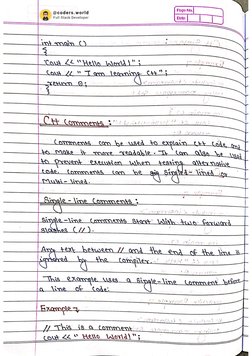 @coders.world
Full Stack Developer
Page No.
Date
int main ()
{
cout << "Hello World!";
cout << "I am learning C++";
return 0;
}
C++ Comments :
Comments can be used to explain C++ code and
to make it more readable. It can also be used
to prevent execution when testing alternative
code. Comments can be singled-lined or
Multi-lined.
Single-line Comments :
Single-line comments start with two forward
slashes (//).
Any text between // and the end of the line is
ignored by the compiler.
This example uses a single-line comment before
a line of code:
Example,
// This is a comment
cout << "Hello World!";